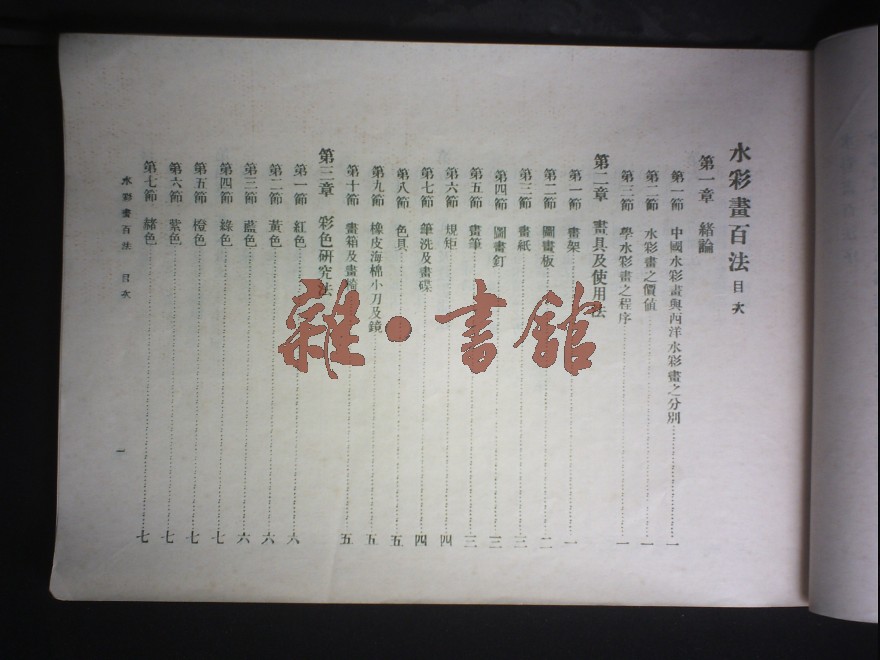 水彩畫百法 目次
第一章 緒論
第一節 中國水彩畫與西洋水彩畫之分別 一
第二節 水彩畫之價値 一
第三節 學水彩畫之程序 一
第二章 畫具及使用法
第一節 畫架 一
第二節 圖畫板 二
第三節 畫紙 三
第四節 圖畫釘 三
第五節 畫筆 三
第六節 規矩 四
第七節 筆洗及畫碟 四
第八節 色具 五
第九節 橡皮海棉小刀及鏡 五
第十節 畫箱及畫 五
第三章 彩色研究法
第一節 紅色 六
第二節 黃色 六
第三節 藍色 六
第四節 綠色 七
第五節 橙色 七
第六節 紫色 七
第七節 赭色 七
水彩畫百法 目次
一
雜·書館